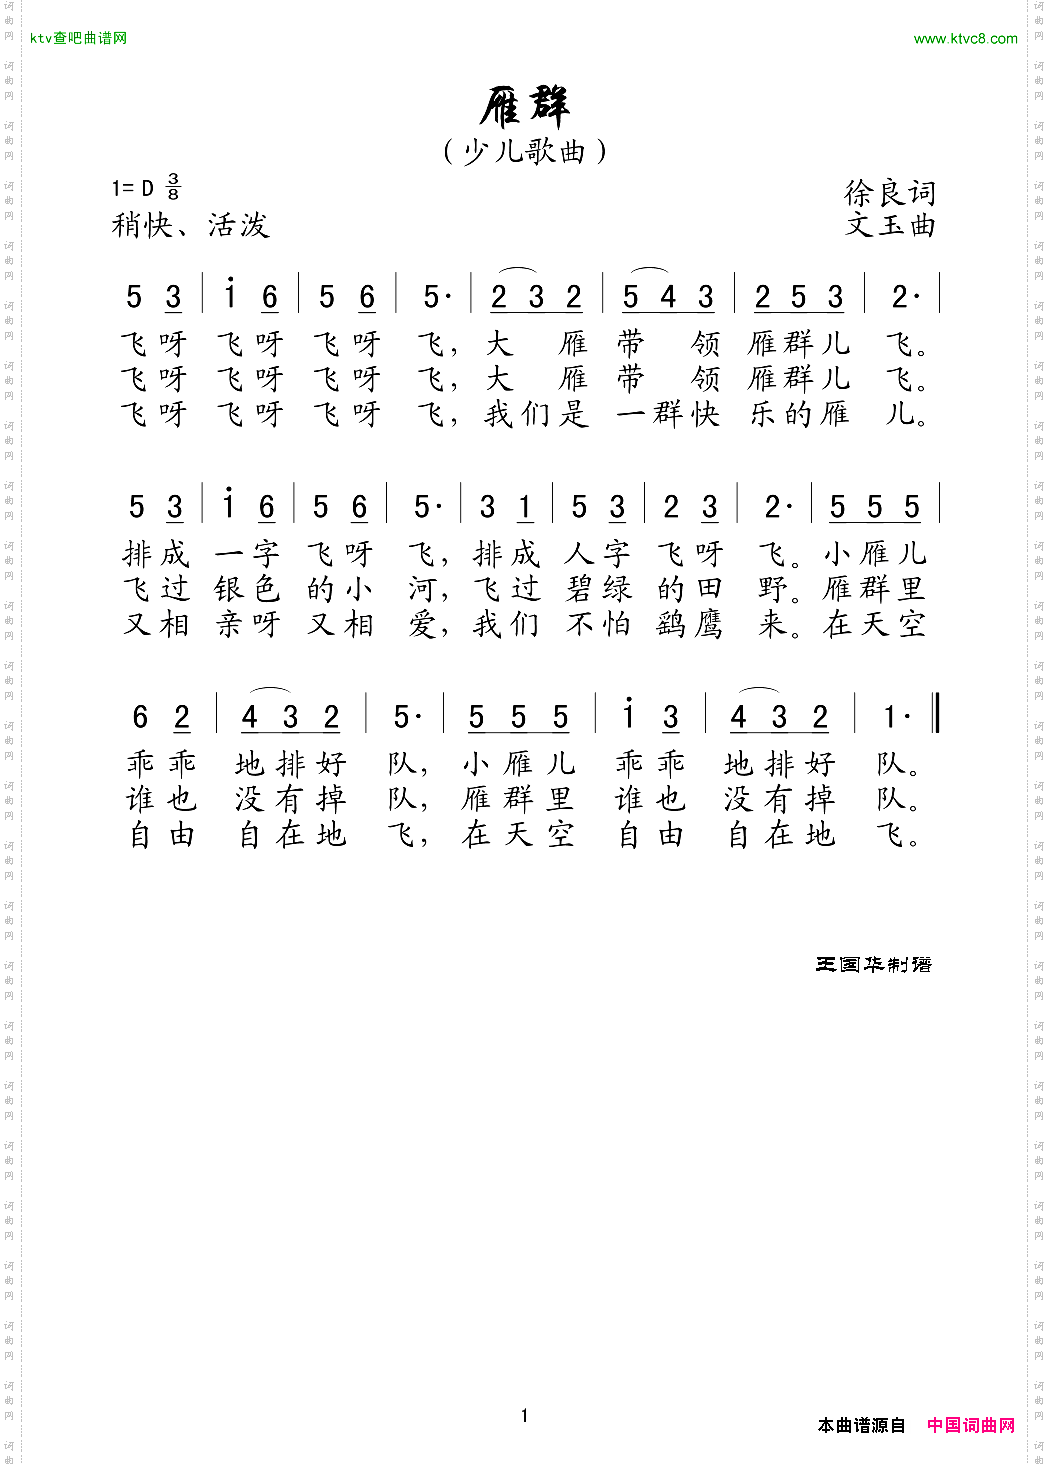 ktv查吧曲谱网
www.ktvc8.com
雁群
（少儿歌曲）
1= D 3/8
徐良词
稍快、活泼
文玉曲
5 3 | i 6 | 5 6 | 5· | 2 3 2 | 5 4 3 | 2 5 3 | 2· |
飞呀 飞呀 飞呀 飞，大 雁 带 领 雁群儿 飞。
飞呀 飞呀 飞呀 飞，大 雁 带 领 雁群儿 飞。
飞呀 飞呀 飞呀 飞，我们是 一群快 乐的雁 儿。
5 3 | i 6 | 5 6 | 5· | 3 1 | 5 3 | 2 3 | 2· | 5 5 5 |
排成 一字 飞呀 飞，排成 人字 飞呀 飞。小雁儿
飞过 银色 的小 河，飞过 碧绿 的田 野。雁群里
又相 亲呀 又相 爱，我们 不怕 鹞鹰 来。在天空
6 2 | 4 3 2 | 5· | 5 5 5 | i 3 | 4 3 2 | 1· ‖
乖乖 地排好 队，小雁儿 乖乖 地排好 队。
谁也 没有掉 队，雁群里 谁也 没有掉 队。
自由 自在地 飞，在天空 自由 自在地 飞。
王国华制谱
1
本曲谱源自 中国词曲网